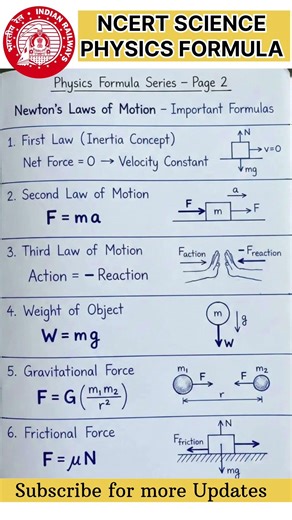 INDIAN RAILWAYS
भारतीय रेल
NCERT SCIENCE
PHYSICS FORMULA
Physics Formula Series – Page 2
Newton's Laws of Motion – Important Formulas
1. First Law (Inertia Concept)
Net Force = 0 → Velocity Constant
N
v=0
mg
2. Second Law of Motion
F = ma
a
F
m
F
3. Third Law of Motion
Action = – Reaction
Faction
–Freaction
4. Weight of Object
W = mg
m
g
W
5. Gravitational Force
F = G(m₁m₂/r²)
m₁
m₂
F
F
r
6. Frictional Force
F = μN
N
Ffriction
mg
Subscribe for more Updates